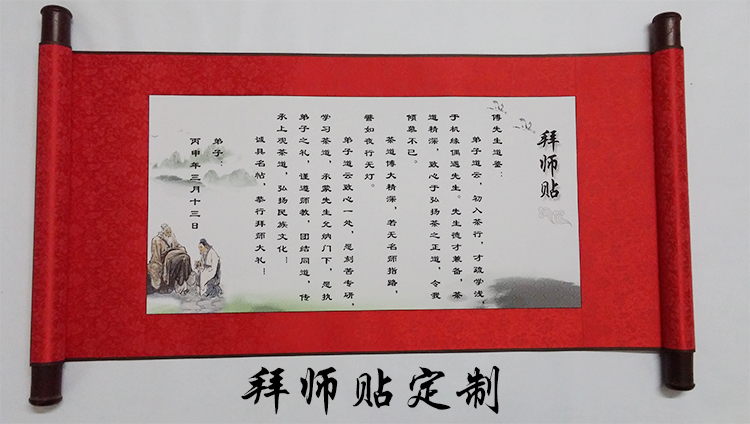 拜师贴
傅先生道鉴：
弟子道云，初入茶行，才疏学浅，
于机缘偶遇先生。先生德才兼备，茶
道精深，致心于弘扬茶之正道，令我
倾慕不已。
茶道博大精深，若无名师指路，
譬如夜行无灯。
弟子道云致心一处，愿刻苦专研，
学习茶道，承蒙先生允纳门下，愿执
弟子之礼，谨遵师教，团结同道，传
承上观茶道，弘扬民族文化！
诚具名帖，恭行拜师大礼！
弟子：
丙申年三月十三日
拜师贴定制